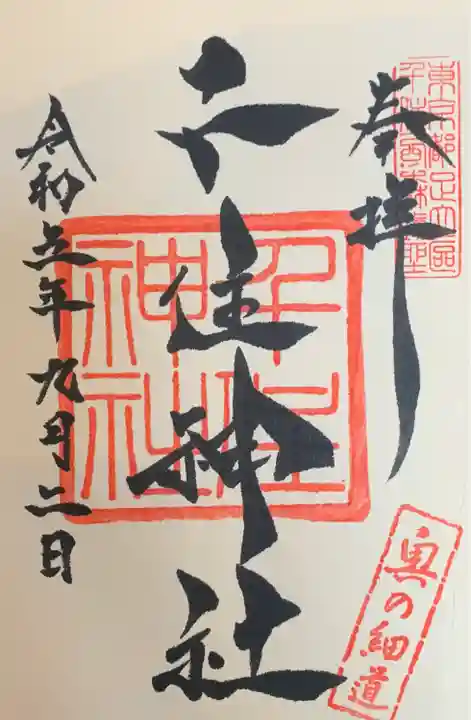 奉拝
東京都足立区
千住神社
千住神社
令和五年九月二日
奥の細道